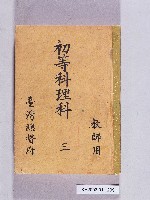 教師用
初等科理科 三
臺灣總督府